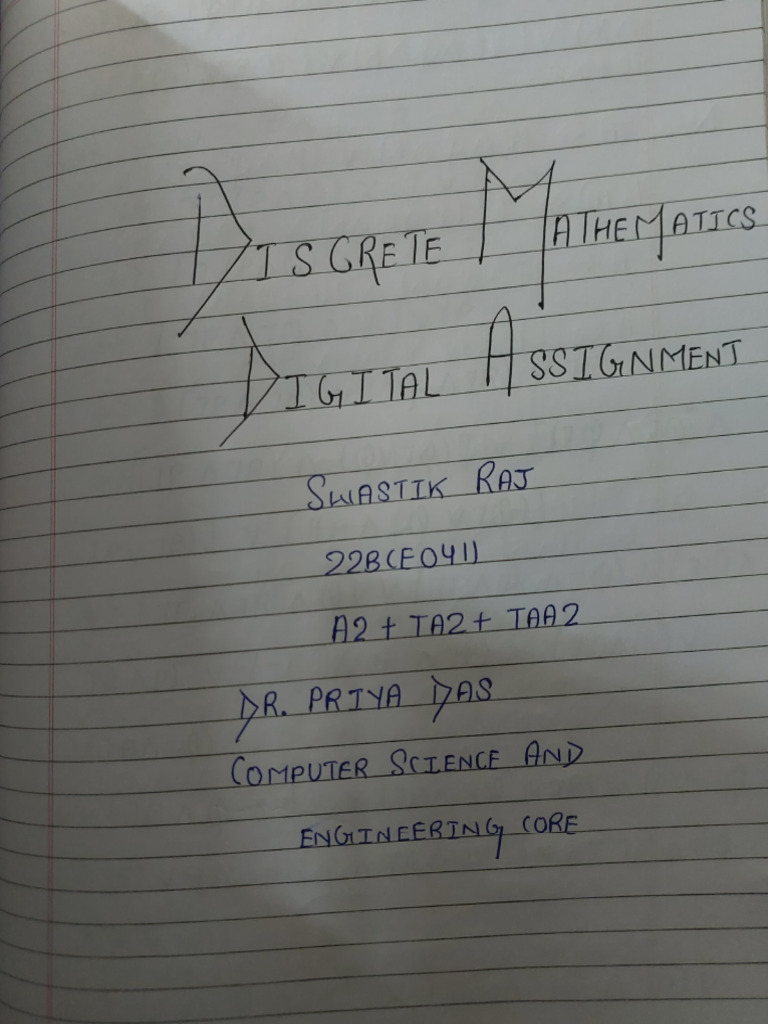 DISCRETE MATHEMATICS
DIGITAL ASSIGNMENT
SWASTIK RAJ
22BCE0411
A2 + TA2 + TAA2
DR. PRIYA DAS
COMPUTER SCIENCE AND
ENGINEERING CORE